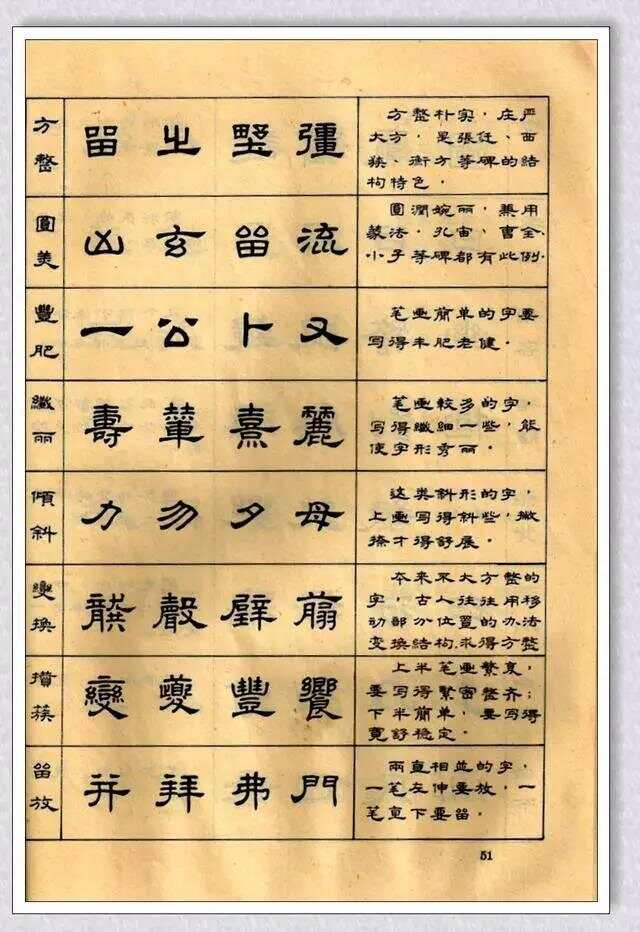 方整
留之彊
方整朴实，庄严
大方，是張迁、西
狭、衡方等碑的结
构特色。
圓美
凶玄留流
圓潤婉丽，兼用
篆法，孔宙、曹全、
小子等碑都有此例.
豐肥
一公卜又
笔画简单的字要
写得丰肥老健。
纖丽
壽葷熹麗
笔画較多的字，
写得纖细一些，能
使字形秀丽。
傾斜
力勿夕母
这类斜形的字，
上画写得斜些，撇
捺才得舒展。
變换
翦
本来不大方整的
字，古人往往用移
动部分位置的办法
变换结构.求得方整
攒簇
變夔豐饗
上半笔画繁复，
要写得緊密整齐；
下半简单，要写得
寬舒穩定。
留放
并拜弗門
兩直相並的字，
一笔左伸要放，一
笔直下要留。
51